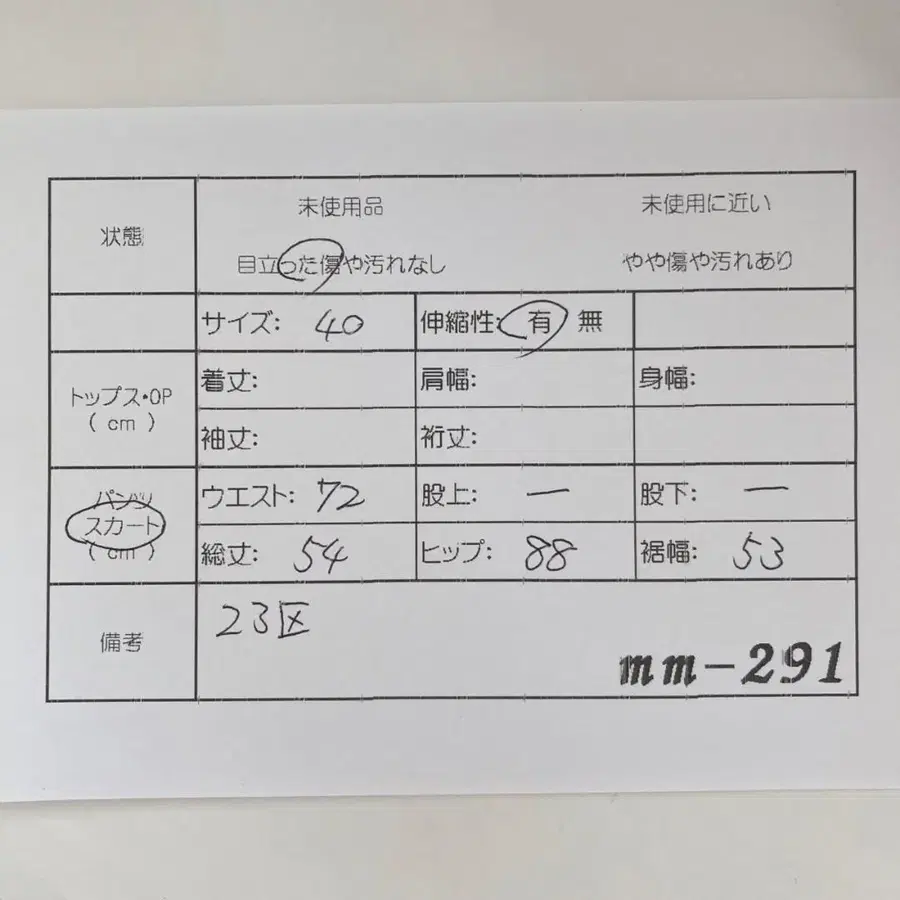 状態
未使用品 未使用に近い
目立った傷や汚れなし やや傷や汚れあり
サイズ: 40 伸縮性: 有 無
トップス・OP
( cm )
着丈: 肩幅: 身幅:
袖丈: 裄丈:
パンツ
スカート
( cm )
ウエスト: 72 股上: ー 股下: ー
総丈: 54 ヒップ: 88 裾幅: 53
備考
23区
mm-291